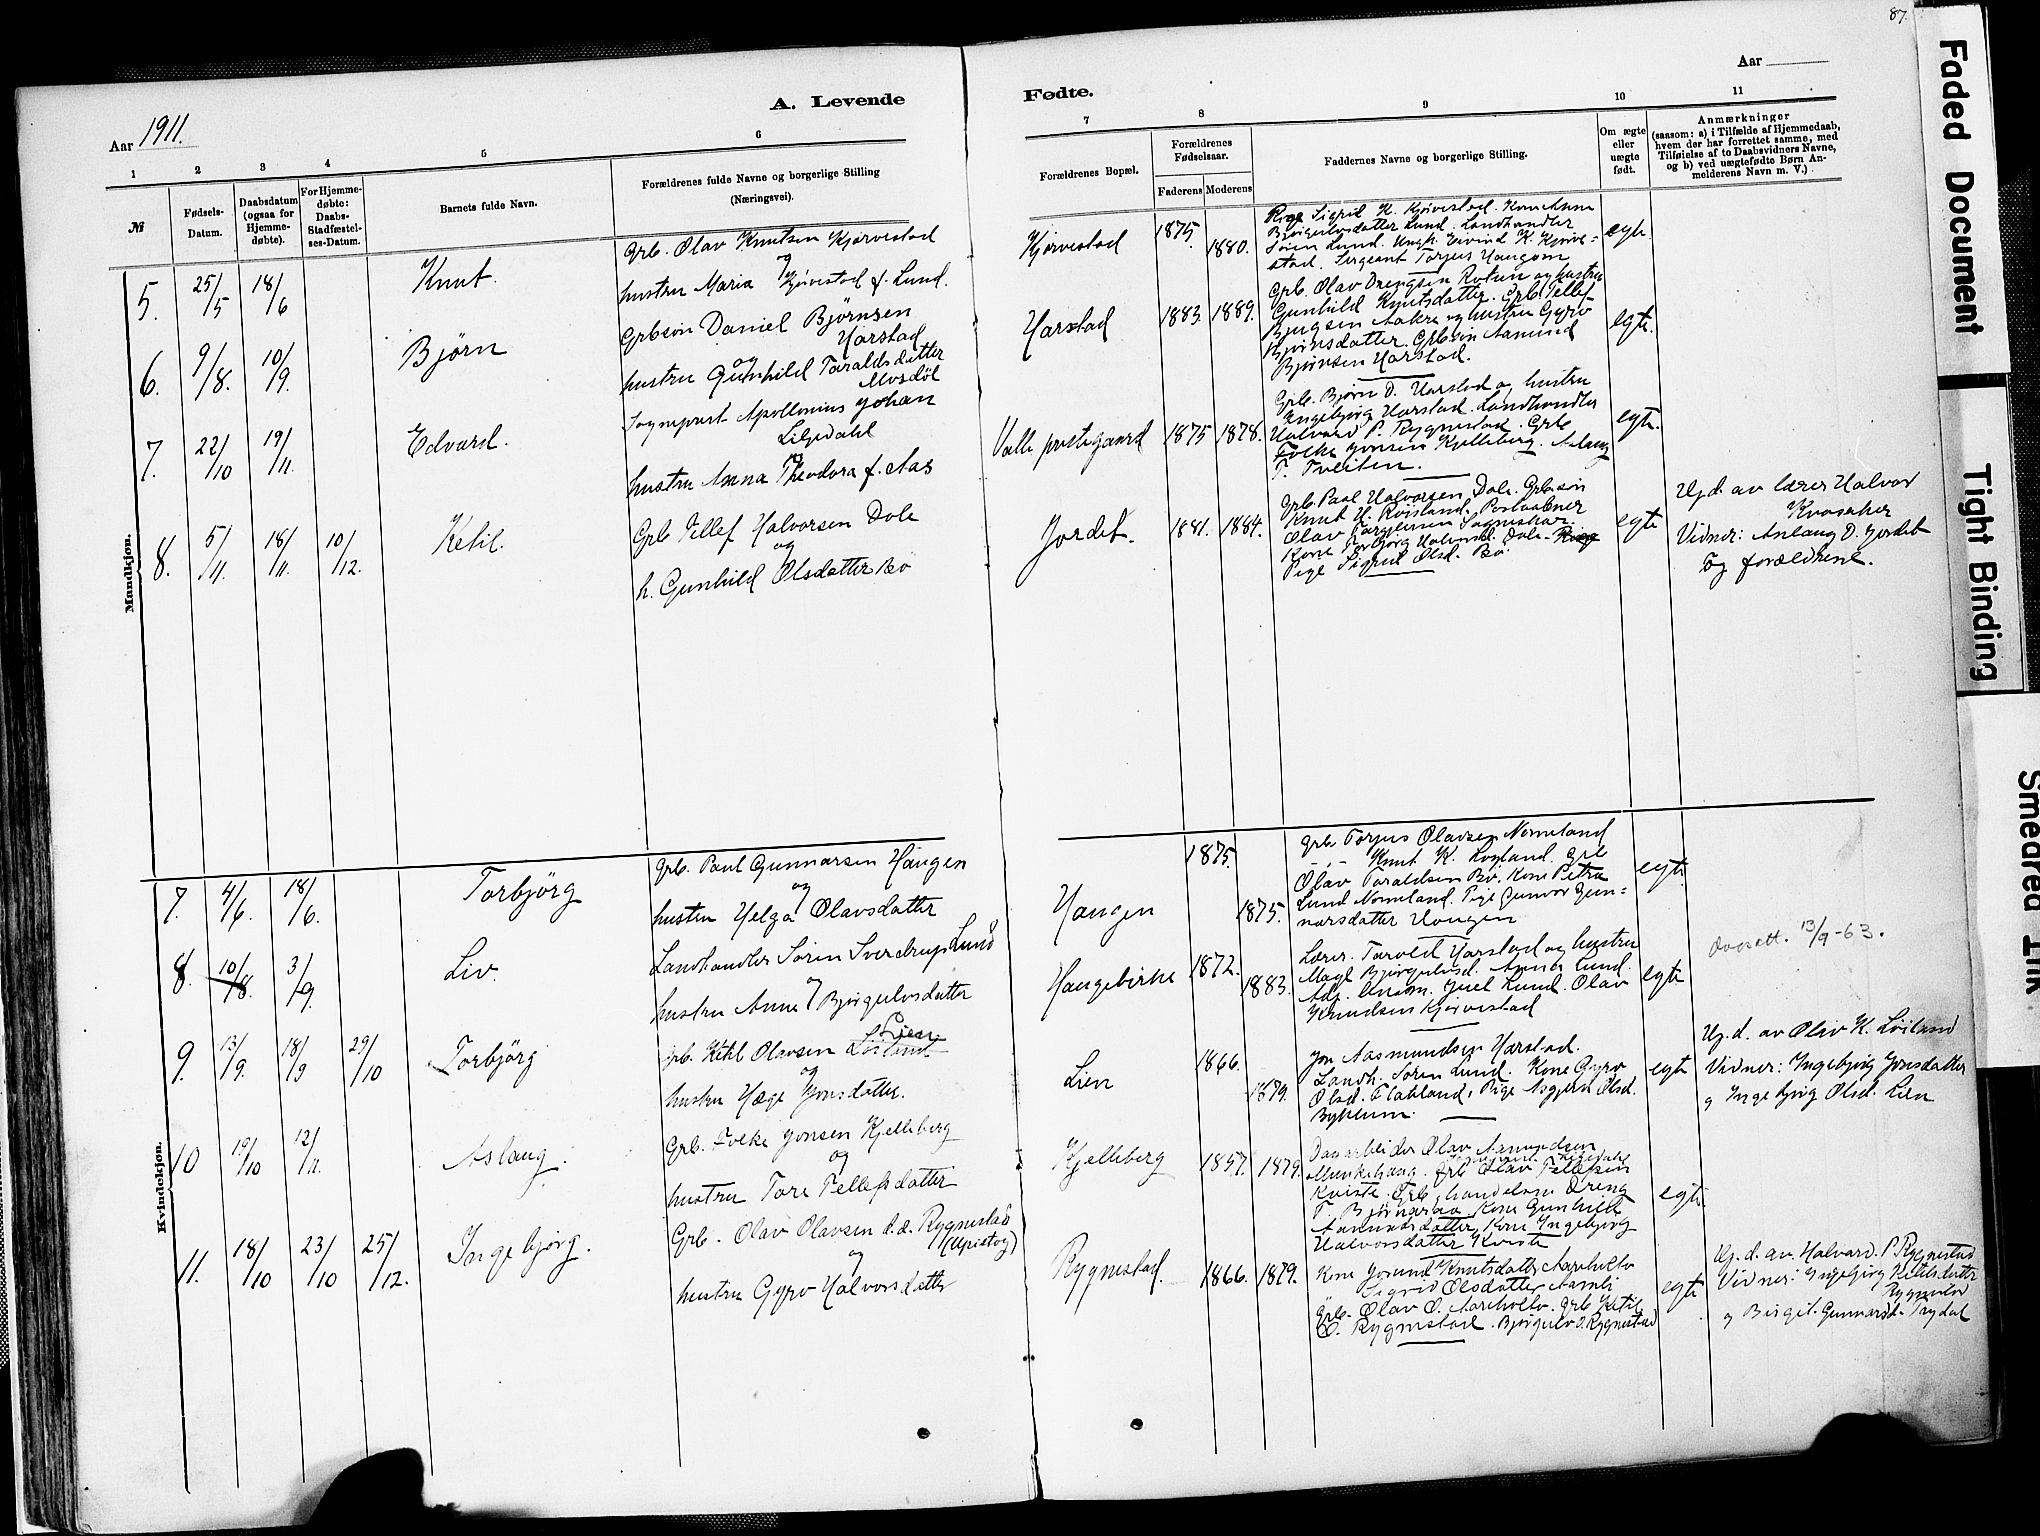 87.
A. Levende
Fødte.
Aar
Aar 1911.
1
2
3
4
5
6
7
8
9
10
11
№
Fødsels-
Datum.
Daabsdatum
(ogsaa for
Hjemme-
døbte).
For Hjemme-
døbte:
Daabs-
Stadfæstel-
ses-Datum.
Barnets fulde Navn.
Forældrenes fulde Navne og borgerlige Stilling
(Næringsvei).
Forældrenes Bopæl.
Forældrenes
Fødselsaar.
Faderens
Moderens
Faddernes Navne og borgerlige Stilling.
Om ægte
eller
uægte
født.
Anmærkninger
(saasom: a) i Tilfælde af Hjemmedaab,
hvem der har forrettet samme, med
Tilføielse af to Daabsvidners Navne,
og b) ved uægtefødte Børn An-
melderens Navn m. V.)
Mandkjøn.
5. 25/5 18/6 Knut.
Grb. Olav Knutsen Kjørvestad
og
hustru Maria Kjørvestad f. Lund.
Kjørvestad 1875. 1880.
Pige Sigrid K. Kjørvestad. Kone Anne
Bjørgulvsdatter Lund. Landhandler
Søren Lund. Ungk. Eivind K. Kjørve-
stad. Sergeant Torjus Haugom
egte.
6. 9/8. 10/9. Bjørn
Grbsøn Daniel Bjørnsen
Harstad
og
hustru Gunhild Taraldsdatter
Mosdøl
Harstad 1883. 1889.
Grb. Olav Drengsen Rotun og hustru
Gunhild Knutsdatter. Grb. Tellef
Bjugsen Aakre og hustru Gyro
Bjørnsdatter. Grbsøn Aamund
Bjørnsen Harstad.
egte.
7. 22/10 19/11. Edvard.
Sogneprest Apollonius Johan
Liljedahl
og
hustru Anna Theodora f. Aas
Valle prestegaard 1875 1878.
Grb. Bjørn D. Harstad og hustru
Ingebjørg Harstad. Landhandler
Halvard P. Rygnestad. Grb.
Folke Jonsen Kjelleberg. Aslaug
T. Tveiten.
egte.
8. 5/11. 18/11. 10/12. Ketil.
Grb Tellef Halvorsen Dole
og
h. Gunhild Olsdatter Bø
Jordet. 1881. 1884.
Grb. Paal Halvorsen Dole. Grb.søn
Knut H. Røisland. Postaabner
Olav
Kone Torbjørg Halvorsd. Dole.
Pige Sigrid Olsd. Bø.
egte
Hj.d. av lærer Halvor
Kvasaker
Vidner: Aslaug O. Jordet
og forældrene.
Kvindekjøn.
7. 4/6. 18/6. Torbjörg
Grb. Paul Gunnarsen Haugen
og
hustru Helga Olavsdatter
Haugen 1875. 1875.
Grb Torjus Olavsen Nomeland
-"- Knut K. Løyland. Grb
Olav Taraldsen Bø. Kone Petra
Lund Nomeland. Pige Gunvor Gun-
narsdatter Haugen
egte.
8. 10/8. 3/9. Liv.
Landhandler Sören Sverdrup Lund
og
hustru Anne Bjørgulvsdatter
Haugebirke 1872. 1883.
Lærer Tarald Harstad og hustru
Margit Bjørgulvsd. Anna Lund.
Juel Lund. Olav
Knudsen Kjørvestad
egte
13/9-63.
9. 13/9. 18/9 29/10 Torbjörg
Grb. Ketil Olavsen Löiland
Lien
og
hustru Hæge Jonsdatter.
Lien 1866. 1879.
Jon Aasmundsen Harstad.
Landh. Søren Lund. Kone Gyro
Olsd. Flateland, Pige Asgjerd Olsd.
Bykleum.
egte
Hj.d. av Olav K. Löiland
Vidner: Ingebjörg Jonsdatter
og Ingebjörg Olsd. Lien
10 19/10 12/11. Aslaug.
Grb. Folke Jonsen Kjelleberg
og
hustru Tore Tellefsdatter
Kjelleberg 1857. 1879.
Olav Aamundsen
Grb Olav Tellefsen
Kviste. Grb. handelsm. Dreng
T. Bjørnaraa. Kone Gunhild
Aanundsdatter, Kone Ingebjørg
Halvorsdatter Kviste
egte
11. 18/10 23/10 25/12. Ingebjörg.
Grb. Olav Olavsen d.æ. Rygnestad
og
hustru Gyro Halvorsdatter
Rygnestad. 1866. 1879.
Kone Jorund Knutsdatter Aarholtv
Sigrid Olsdatter Aamli
Grb. Olav O. Aarholtv. Grb Ketil
O. Rygnestad. Bjørgulv O. Rygnestad
egte
Hj.d. av Halvard P. Rygnestad
Vidner: Ingebjørg Ketilsdatter
Rygnestad
og Birgit Gunnarsd. Trydal
Faded Document
Tight Binding
Smeared Ink